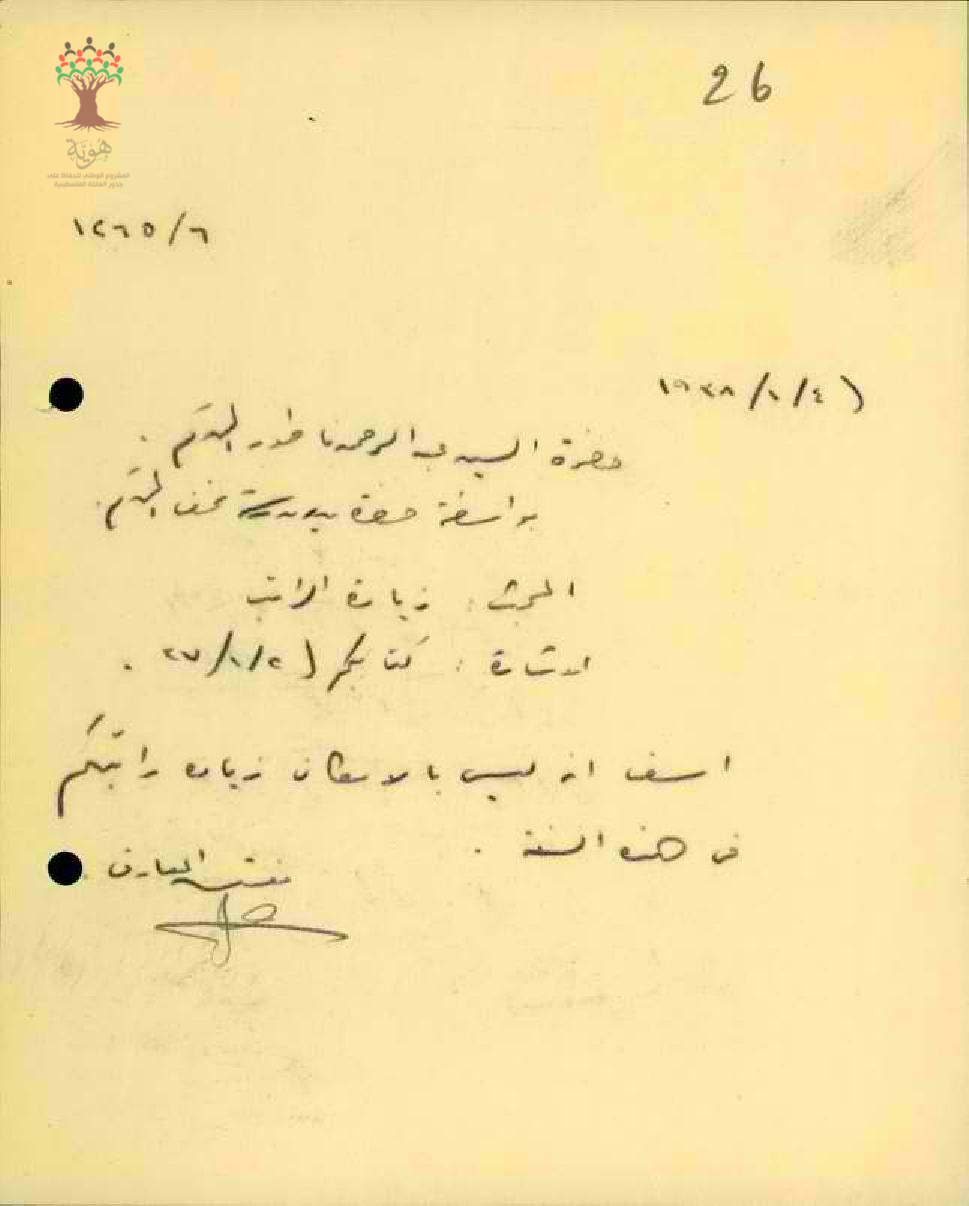 26
هُوِيَّة
المشروع الوطني للحفاظ على
جذور العائلة الفلسطينية
١٢٦٥/٦
١٩٣٨/١/٤
حضرة السيد عبد الرحمن المحترم .
بواسطة حضرة المحترم .
المبحث : زيادة الراتب
الاشارة : كتابكم
اسف انه ليس بالامكان زيادة راتبكم
في هذه السنة .
مفتش المعارف